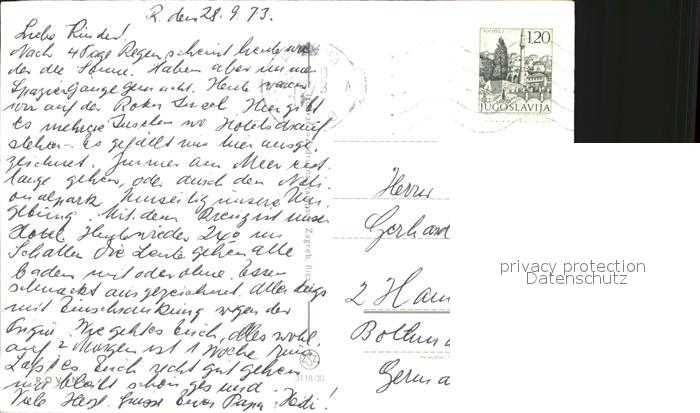 R. den 28.9.73.
Liebe Kinder!
Nach 4 Tage Regen scheint heute wie
der die Sonne. Haben aber immer
Spaziergänge gemacht. Heute waren
wir auf der Roten Insel. Hier gibt
es mehrere Inseln wo Hotels drauf
stehen. Es gefällt uns hier ausge
zeichnet. Immer am Meer ent
lange gehen, oder durch den Nati
onalpark. Umseitig unsere Um
gebung. Mit dem Kreuz ist unser
Hotel. Heute wieder 24° im
Schatten. Die Leute gehen alle
baden mit oder ohne. Essen
schmeckt ausgezeichnet. Allerdings
mit Einschränkung wegen der
Wie geht es Euch, alles wohl
auf? Morgen ist 1 Woche rum
Laßt es Euch recht gut gehen
und bleibt schön gesund.
Viele Herzl. Grüsse Euer Papa Heidi!
POČITELJ
1.20
JUGOSLAVIJA
Herrn
Gerhard
2 Ham
Bottm
Germa
Zagreb, Ilica
3118/30
ROVINJ
privacy protection
Datenschutz